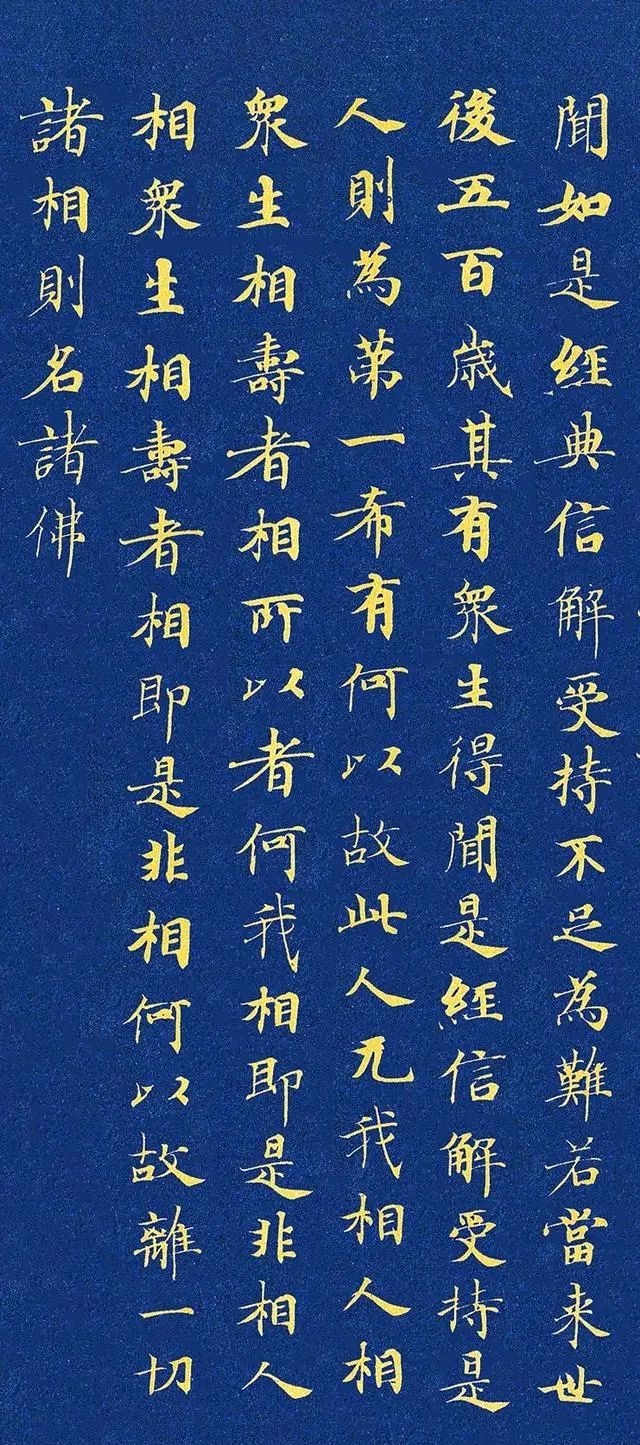 聞如是經典信解受持不足為難若當来世
後五百歳其有衆生得聞是經信解受持是
人則為苐一希有何以故此人无我相人相
衆生相壽者相所以者何我相即是非相人
相衆生相壽者相即是非相何以故離一切
諸相則名諸佛